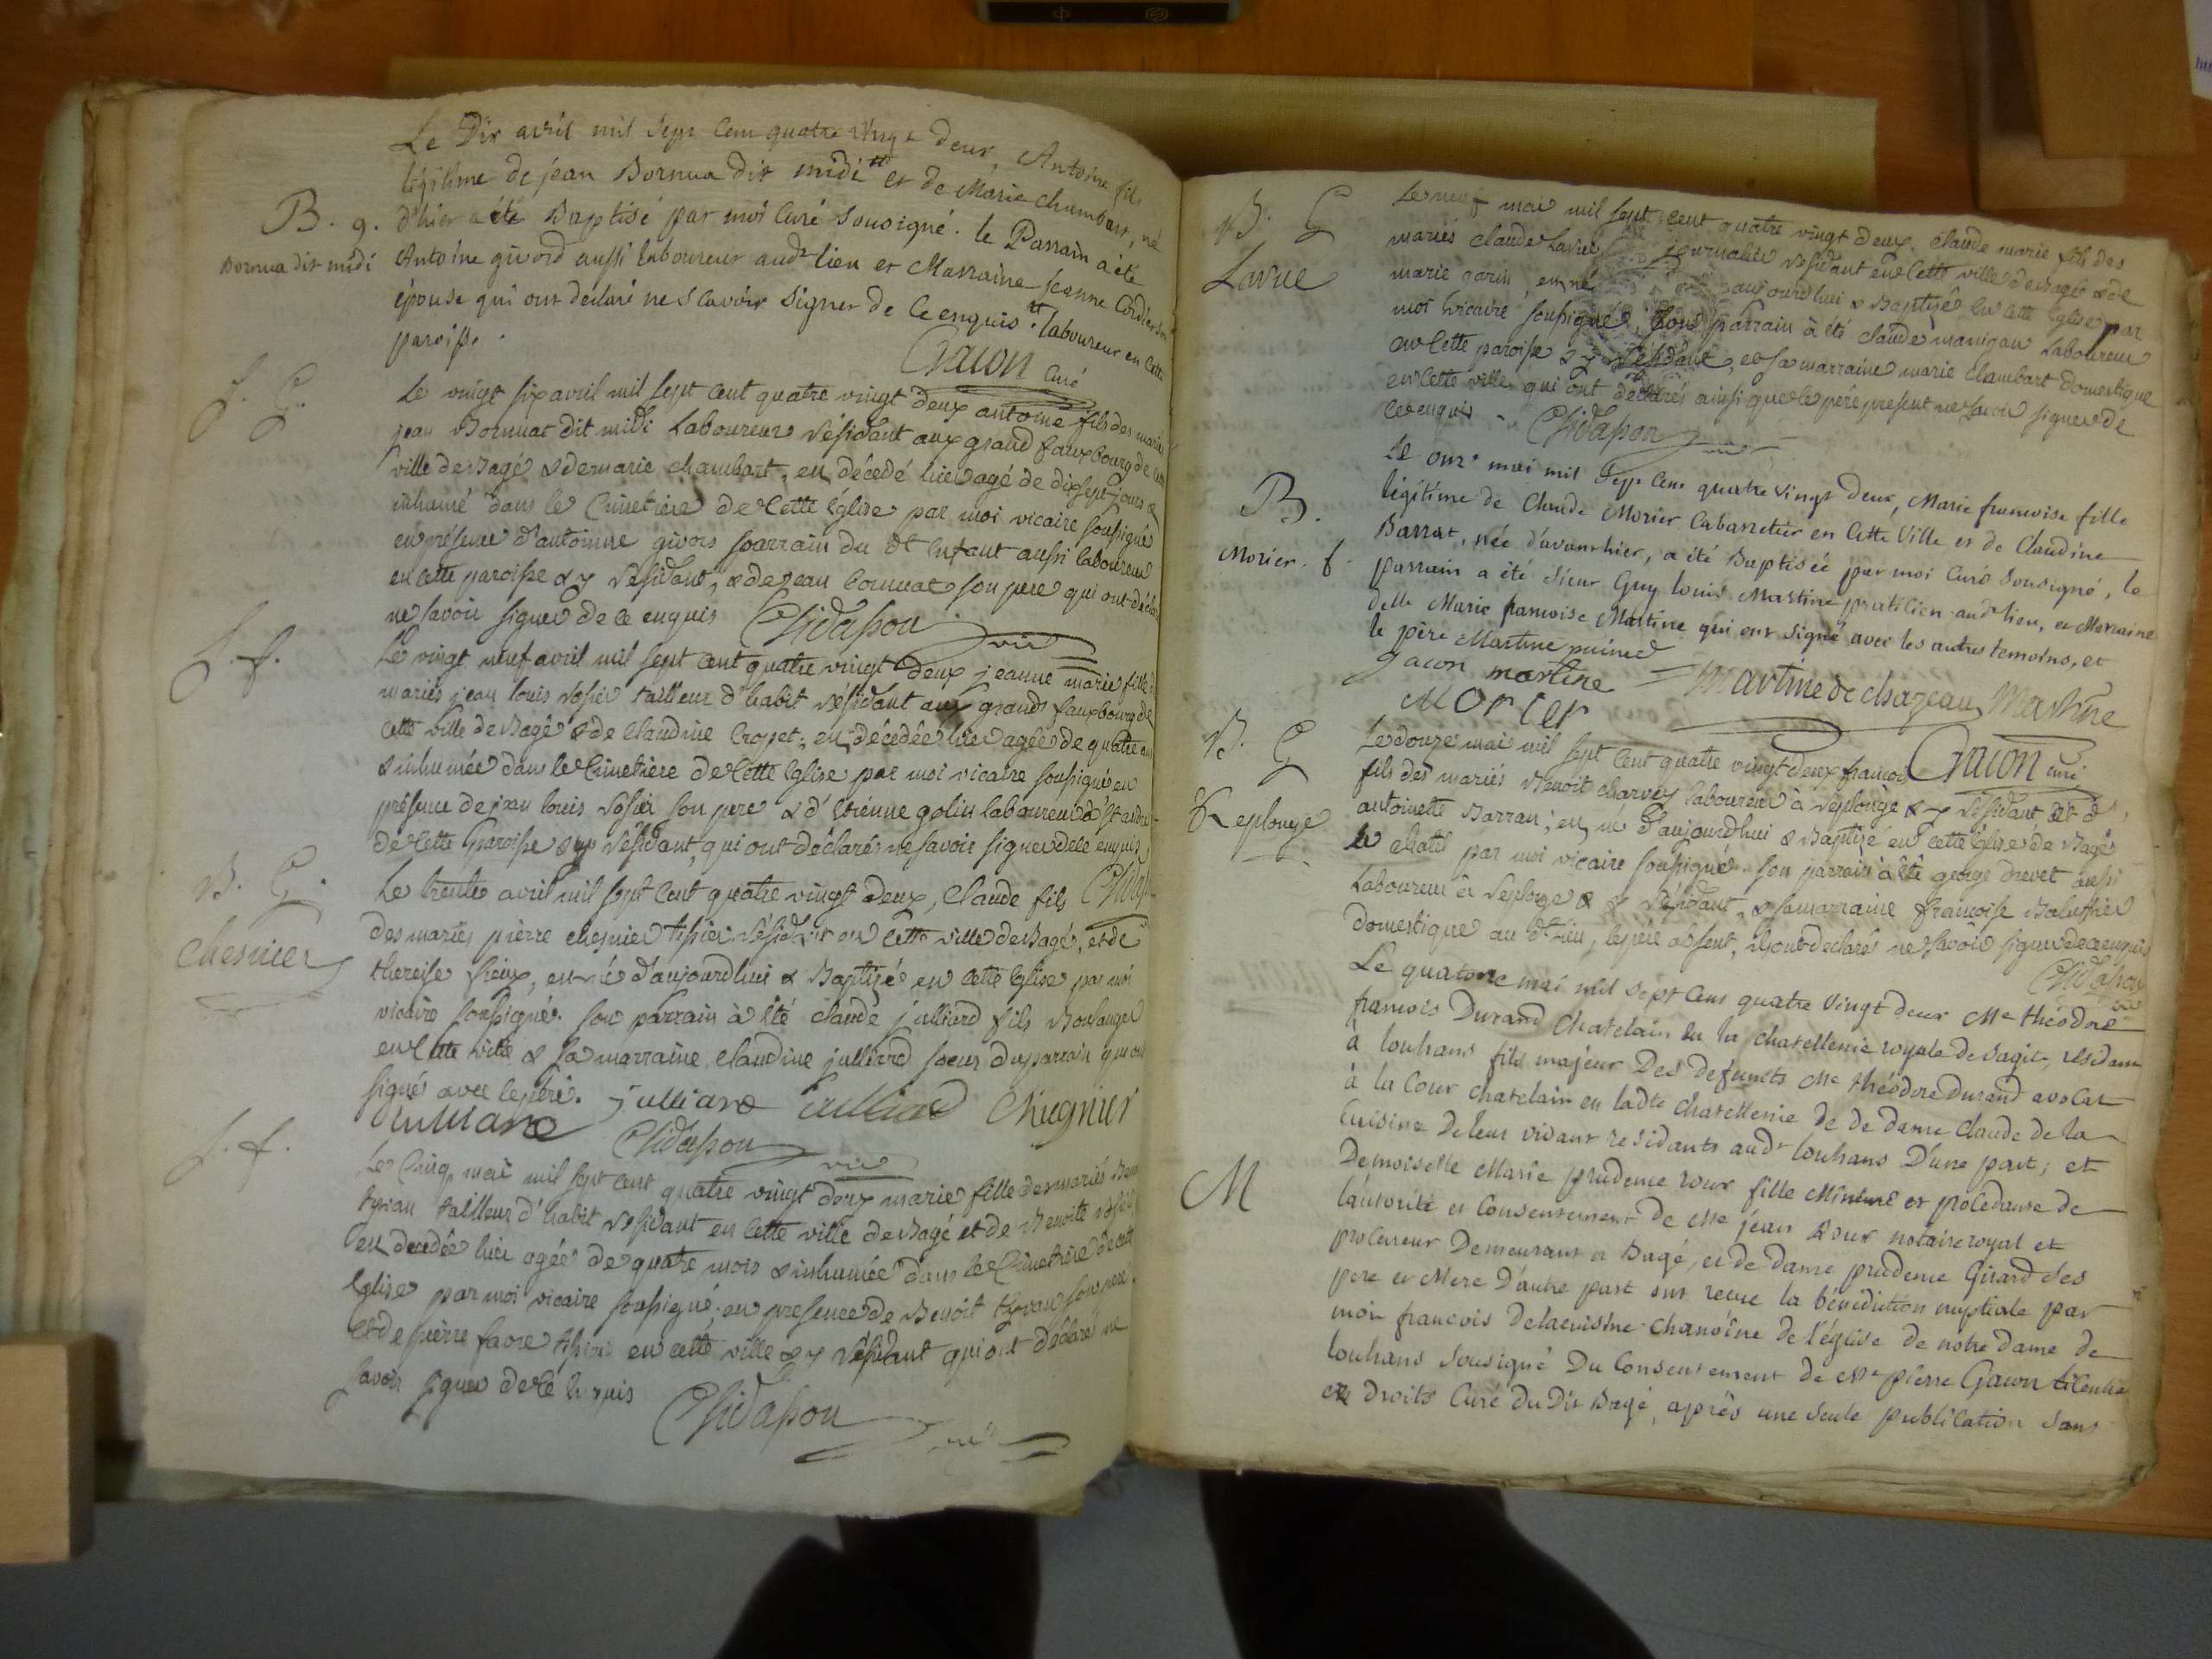 Le Dix avril mil sept cent quatre vingt deux, Antoine fils
légitime de jean Bornua dit midi et de Marie chambart, né
B. g. d'hier a été Baptisé par moi Curé Sousigné. le Parrain a été
Bornua dit midi Antoine givord aussi laboureur audt lieu et Marraine jeanne Cordier son
épouse qui ont déclaré ne Scavoir Signer de Ce enquis. laboureur en Cette
paroisse.
Gacon Curé
Le vingt six avril mil sept cent quatre vingt deux antoine fils des mariés
jean Bornuat dit midi Laboureur résidant aux grand fauxbourg de cette
ville de Bagé & de marie chambart, en décedé hier agé de dixsept jours &
inhumé dans le Cimetiere de Cette église par moi vicaire soussigné
en présence d'antoinne givors parrain du dt enfant aussi laboureur
en cette paroisse & y résidant, & de jean bornuat son pere qui ont déclaré
ne savoir signer de ce enquis Chidasson vic
Le vingt neuf avril mil sept cent quatre vingt deux jeanne marie fille des
mariés jean louis tailleur d'habit résidant aux grands fauxbourg de
cette ville de Bagé & de claudine Cropet, en décedée hier agée de quatre ans
& inhumée dans le Cimetiere de Cette église par moi vicaire soussigné en
présence de jean louis son pere & d'etienne golin laboureur à St andré
de cette paroisse & y résidant, qui ont déclarés ne savoir signer de ce enquis
B. G. Le trente avril mil sept cent quatre vingt deux, Claude fils
des mariés pierre chesnier tissier résidant en cette ville de Bagé, et de
Chesnier
thereise fieux, en né d'aujourdhui & Baptizé en cette église par moi
vicaire soussigné. son parrain à été claude julliard fils Boulanger
en cette ville & sa marraine claudine julliard soeur du parrain qui ont
signés avec le père. julliard julliard Chugnier
julliard Chidasson vic
Le Cinq mai mil sept cent quatre vingt deux marie fille des mariés
tailleur d'habit résidant en cette ville de Bagé et de Benoite
en decedée hier agée de quatre mois & inhumée dans le Cimetiere de cette
église par moi vicaire soussigné, en presence de Benoit son pere
et de pierre favre tissier en cette ville & y résidant qui ont déclarés ne
savoir signer de ce enquis Chidasson
vic
B. G Le neuf mai mil sept cent quatre vingt deux, claude marie fils des
Lavue mariés claude Lavue journalier résidant en Cette ville de Bagé & de
marie garin, en né aujourdhui & Baptisé en cette église par
moi vicaire soussigné, son parrain à été claude manigan Laboureur
en cette paroisse & y résidant, et sa marraine marie chambart domestique
en cette ville qui ont déclarés ainsi que le pere present ne savoir signer de
ce enquis. Chidasson vic
B. Le onze mai mil Sept Cent quatre vingt deux, Marie francoise fille
légitime de Claude Morier Cabarretier en Cette Ville et de Claudine
Barrat, née d'avanthier, a été Baptisée par moi Curé Sousigné, le
Morier. f. parrain a été Sieur Guy louis Martine praticien audt lieu, et Marraine
delle Marie francoise Martine qui ont Signé avec les autres temoins, et
le père Martine puiné
Gacon martine Martine de chazeau Martine
Morier
Gacon curé
B. G Le douze mai mil sept cent quatre vingt deux francois
fils des mariés Benoit charvet laboureur à Replonge & y résidant & d
Replonge antoinette Barran, en né d'aujourdhui & Baptizé en cette église de Bagé
le chatel par moi vicaire soussigné. son parrain à été george drevet aussi
Laboureur à Replonge & y résidant, & sa marraine francoise
domestique au dt lieu, le pere absent, ils ont declaré ne savoir signer de ce enquis
Chidasson vic
Le quatorze mai mil sept cent quatre vingt deux Me théodore
francois Durand Chatelain en la chatellenie royale de Sagit, résidant
à louhans fils majeur des defuncts Me théodore Durand avocat
à la Cour chatelain en ladte chatellenie & de dame Claude de la
Cuisine de leur vivant residants audt louhans D'une part; et
M Demoiselle Marie prudence roux fille Mineure et procedante de
l'autorité et Consentement de Me jean Roux notaire royal et
procureur Demeurant à Bagé, et de dame prudence Girard ses
pere et Mere D'autre part ont recue la bénédiction nuptiale par
moi francois Delacuisine chanoîne de l'église de nôtre dame de
louhans Sousigné Du Consentement de Me pierre Gacon
en droits Curé Du Dit Bagé, aprés une Seule publication sans